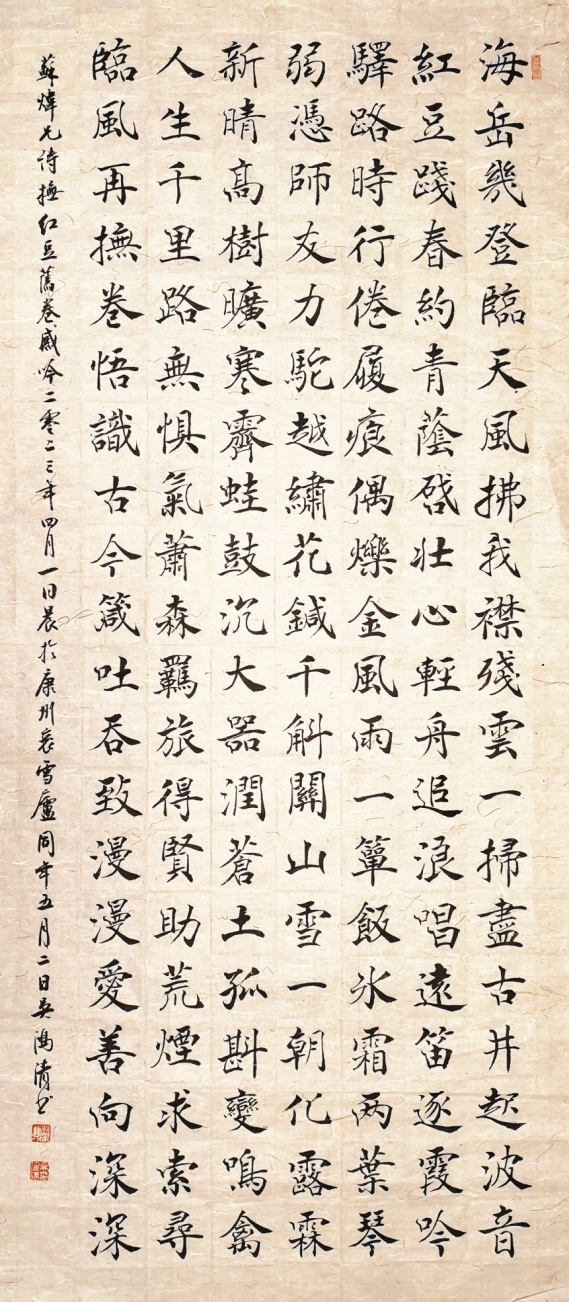 海岳幾登臨天風拂我襟殘雲一掃盡古井起波音
紅豆踐春約青蔭啓壯心輕舟追浪唱遠笛逐霞吟
驛路時行倦履痕偶爍金風雨一簞飯冰霜兩葉琴
弱憑師友力駝越繡花鍼千斛關山雪一朝化露霖
新晴高樹曠寒霽蛙鼓沉大器潤蒼土孤斟變鳴禽
人生千里路無惧氣蕭森羈旅得賢助荒煙求索尋
臨風再撫卷悟識古今箴吐吞致漫漫愛善向深深
蘇煒兄詩撫紅豆舊卷感吟二零二三年四月一日晨於康州衮雪廬同年五月二日吳鴻清書